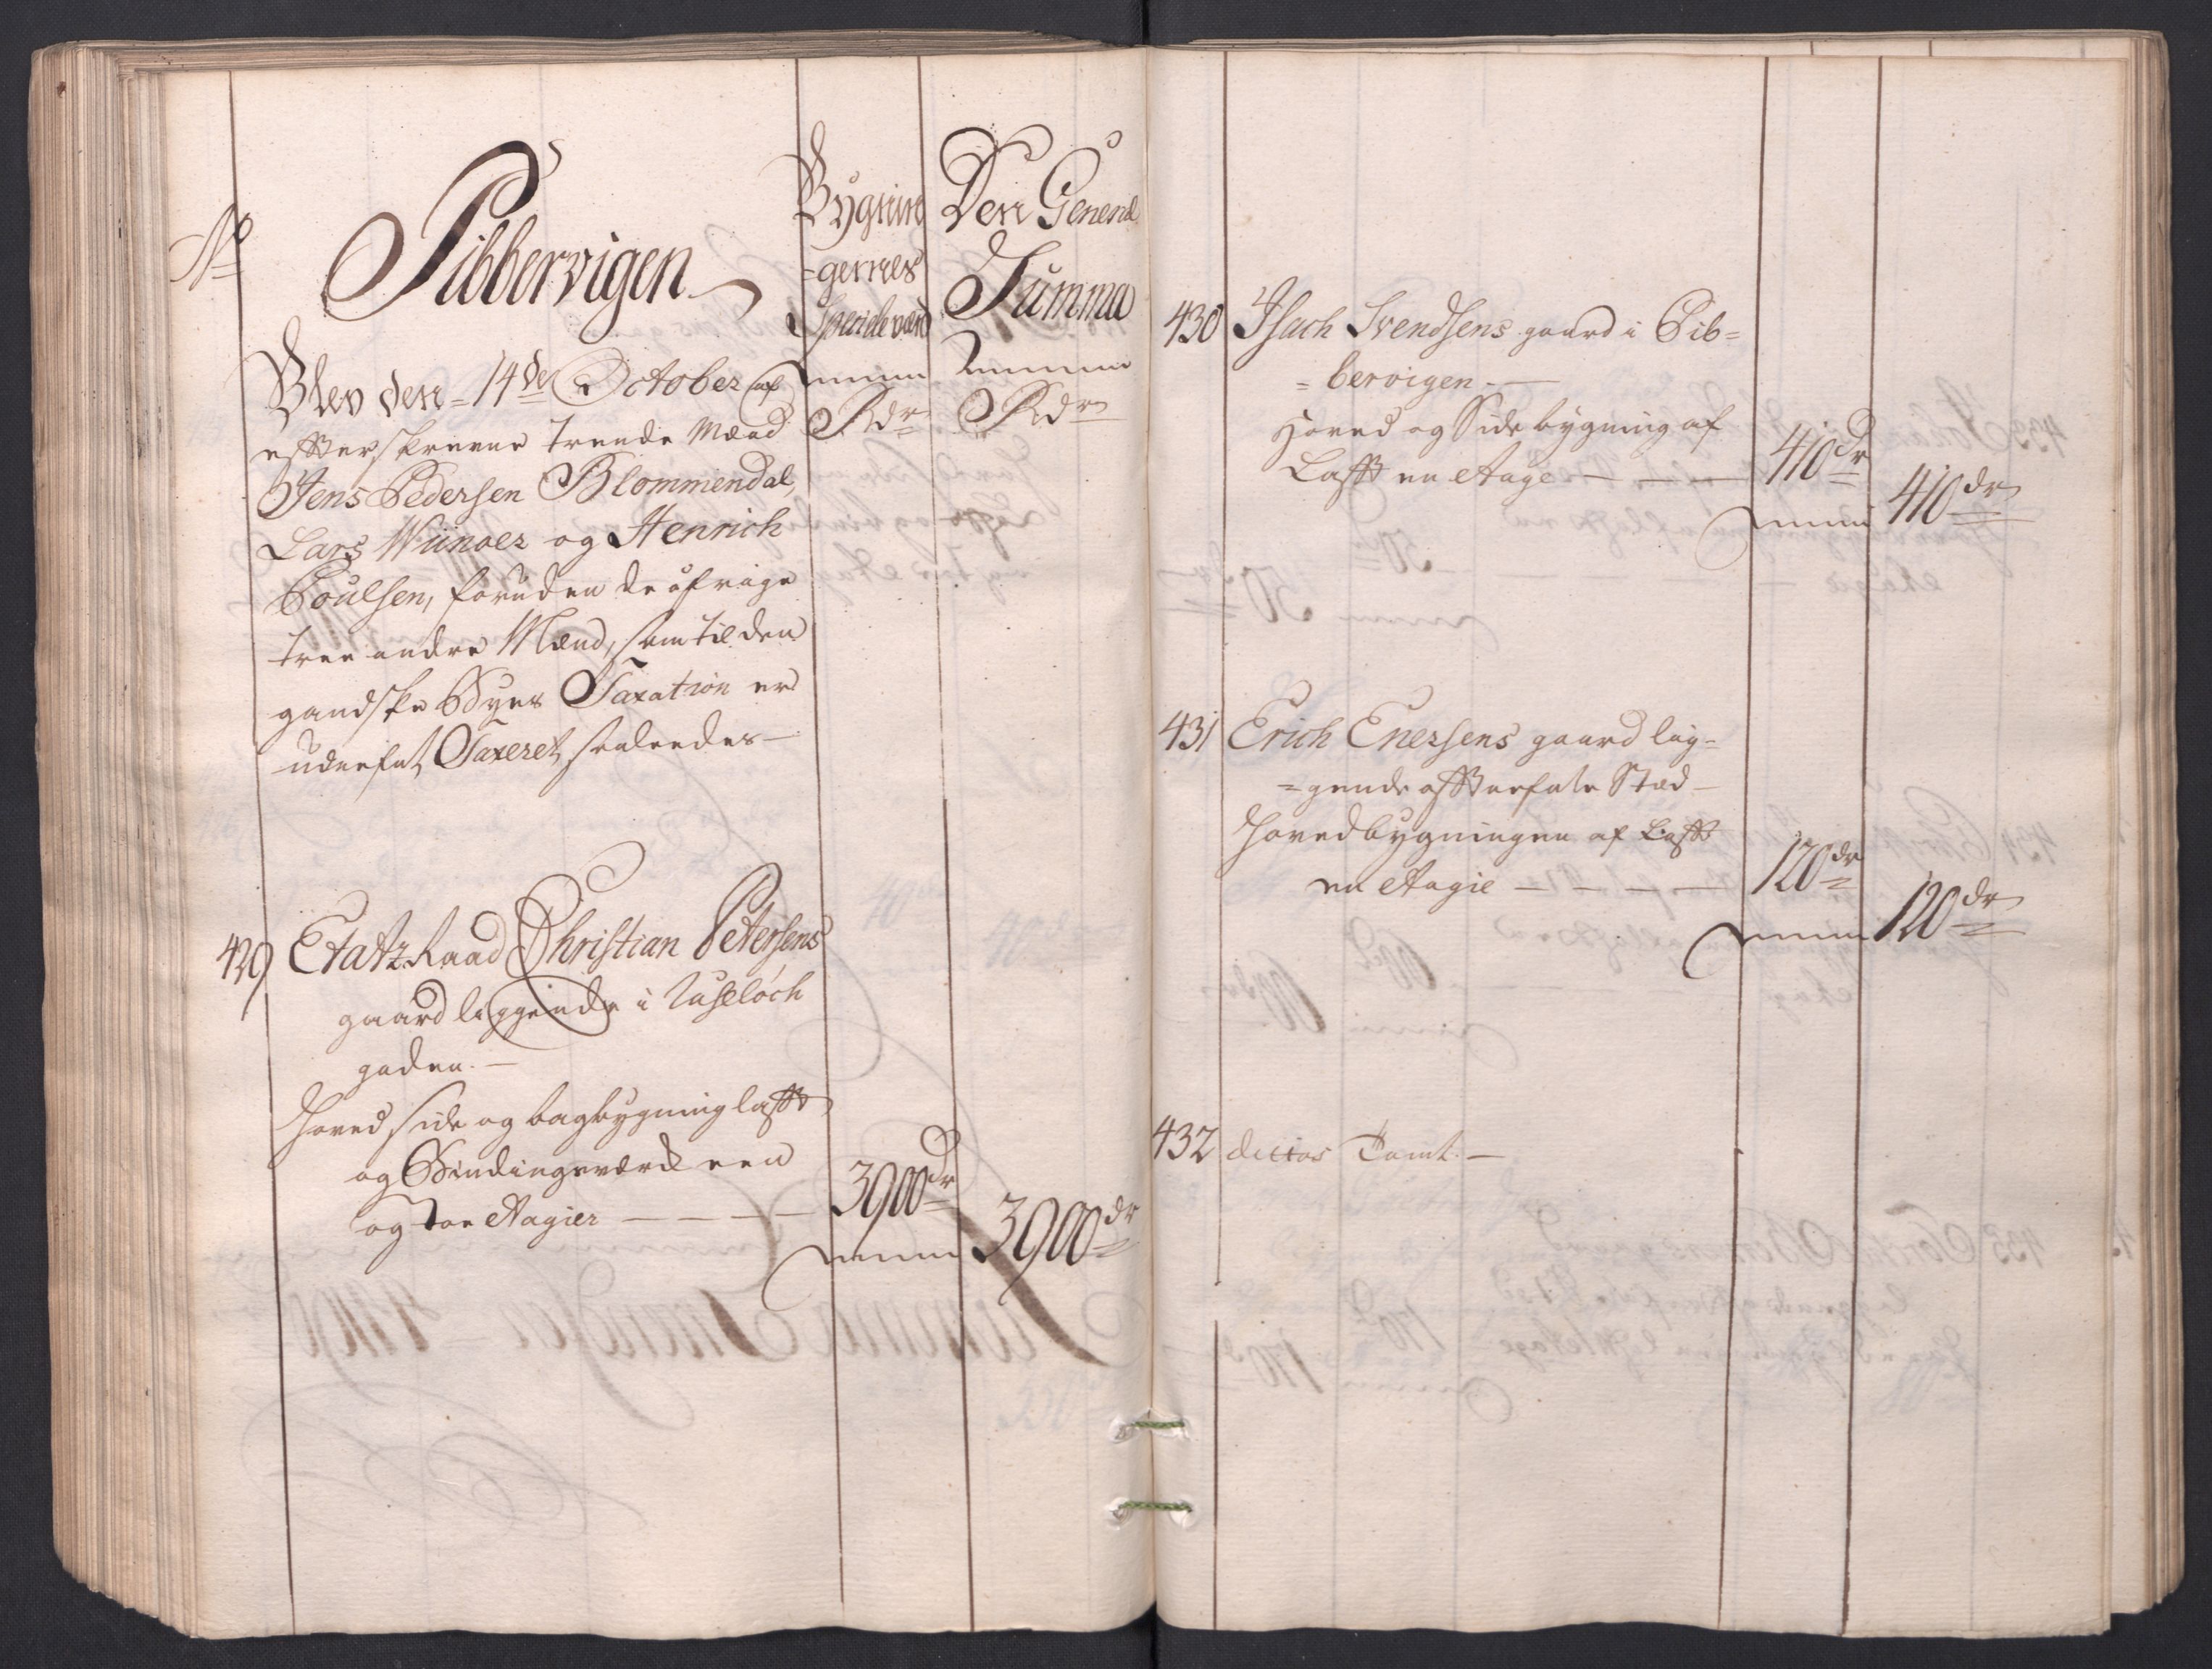 No
Pibbervigen
Bygnin
=gernes
Speciele værd
Den General
Summa
Rdr
Rdr
Blev den 14de October af
effterskrevne trende Mænd
Jens Pedersen Blommendal,
Lars Wiinoer og Henrich
Poulsen, foruden de øfrige
tree andre Mænd, som til den
gandske Byes Taxation er
udnefnt, Taxeret saaledes
429 EtatzRaad Christian Petersens
gaard liggende i Ruseløch
gaden.
Hoved side og bagbygning lafft
og Bindingsværck een
og toe Etagier 3900dr
3900dr
430 Isach Svendsens gaard i Pib=
=bervigen.
Hoved og Sidebygning af
Lafft en Etage 410dr
410dr
431 Erich Enersens gaard lig=
=gende østenfate Stæd
Hovedbygningen af Lafft
en Etagie 120dr
120dr
432 dittos Tomt.